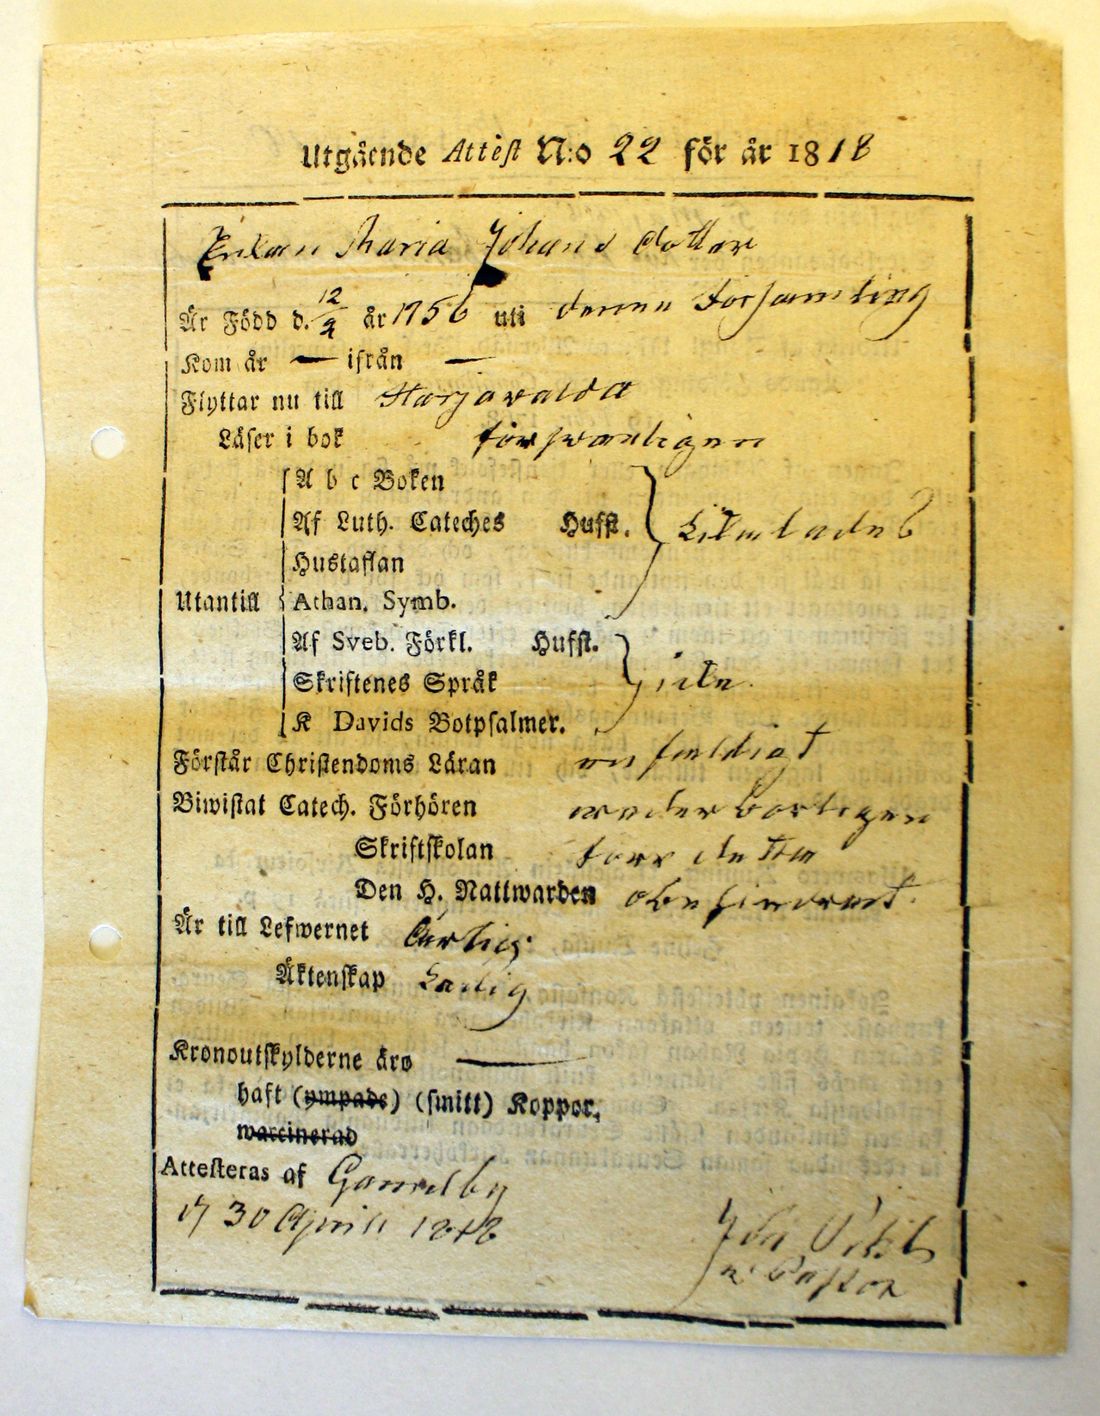 Utgående Attest N:o 22 för år 1818
Maria Johans dotter
Är Född d. 12/4 år 1756 uti denna Församling
Kom år — ifrån —
Flyttar nu till Harjavalda
Läser i bok försvarligen
A b c Boken
Af Luth. Cateches Hufst.
Hustaflan
Utantill Athan. Symb.
Af Sveb. Förkl. Hufst.
Skriftenes Språk icke
K Davids Botpsalmer.
Förstår Christendoms Läran enfaldigt
Biwistat Catech. Förhören wederbörligen
Skriftskolan förr detta
Den H. Nattwarden obehindrat.
Är till Lefwernet Ärlig.
Äktenskap Ledig
Kronoutskylderne äro —
haft (ympade) (smitt) Koppor,
waccinerad
Attesteras af Gammelby
d 30 April 1818
Pastor